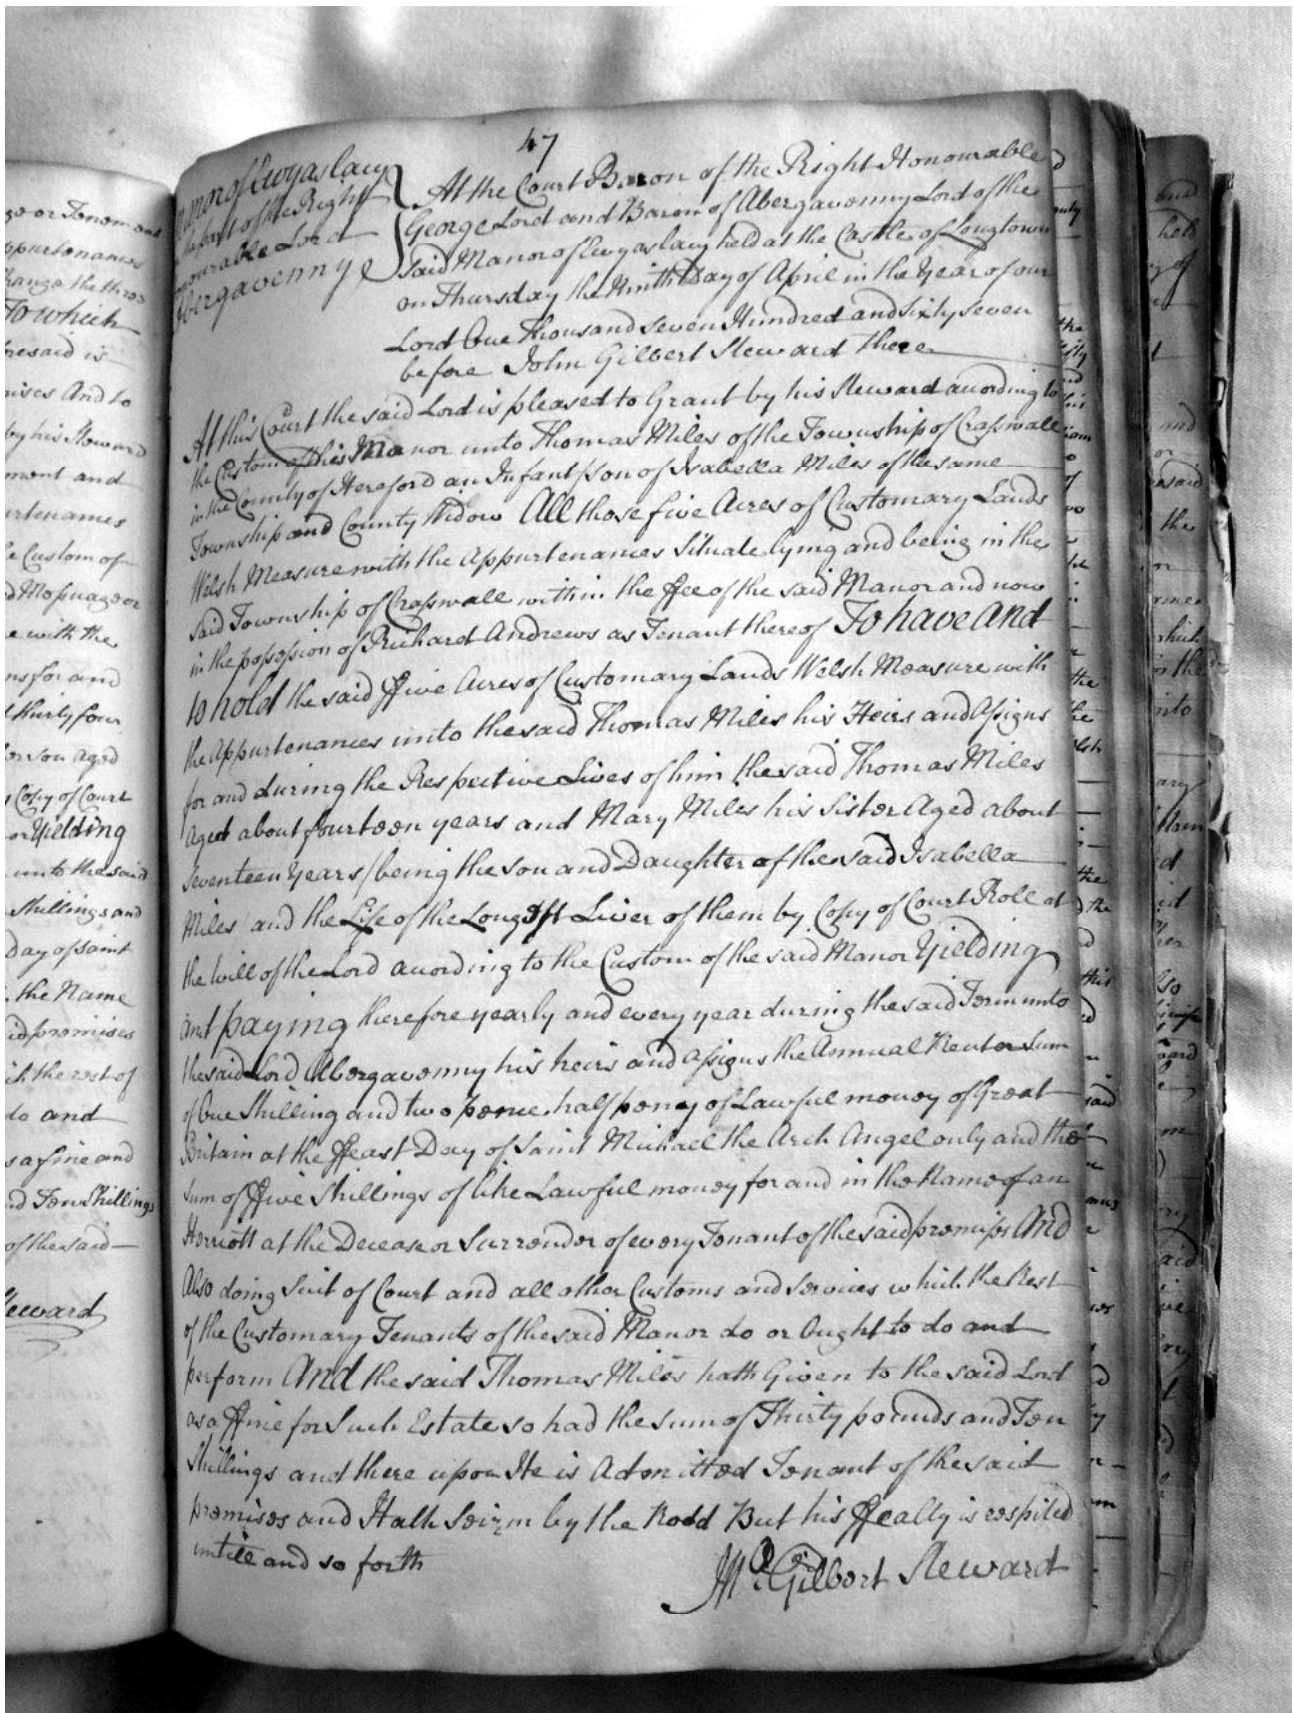 47
Manor of Ewyaslacy
the part of the Right
Honourable Lord
Abergavennye
At the Court Baron of the Right Honourable
George Lord and Baron of Abergavenny Lord of the
Said Manor of Ewyaslacy held at the Castle of Longtown
on Thursday the Ninth Day of April in the Year of our
Lord One Thousand seven Hundred and sixty seven
before John Gilbert Steward there
At this Court the said Lord is pleased to Grant by his Steward according to
the Custom of this Manor unto Thomas Miles of the Township of Craswall
in the County of Hereford an Infant son of Isabella Miles of the same
Township and County Widow All those five Acres of Customary Lands
Welsh Measure with the Appurtenances Situate lying and being in the
said Township of Craswall within the ffee of the said Manor and now
in the possession of Richard Andrews as Tenant thereof To have And
to hold the said ffive Acres of Customary Lands Welsh Measure with
the Appurtenances unto the said Thomas Miles his Heirs and Assigns
for and during the Respective Lives of him the said Thomas Miles
Aged about fourteen years and Mary Miles his Sister Aged about
seventeen Years /being the son and Daughter of the said Isabella
Miles and the Life of the Longest Liver of them by Copy of Court Roll at
the will of the Lord according to the Custom of the said Manor Yielding
and paying therefore yearly and every year during the said Term unto
the said Lord Abergavenny his heirs and assigns the Annual Rent or Sum
of One Shilling and two pence half peny of Lawful money of Great
Britain at the ffeast Day of Saint Michael the Arch Angel only and the
sum of ffive Shillings of like Lawful money for and in the Name of an
Herriott at the Decease or Surrender of every Tenant of the said premises And
Also doing Suit of Court and all other Customs and Services which the Rest
of the Customary Tenants of the said Manor do or Ought to do and
perform And the said Thomas Miles hath Given to the said Lord
as a ffine for Such Estate so had the sum of Thirty pounds and Ten
Shillings and there upon He is Admitted Tenant of the said
premises and Hath Seizin by the Rodd But his ffealty is respited
untill and so forth
Jno. Gilbert Steward